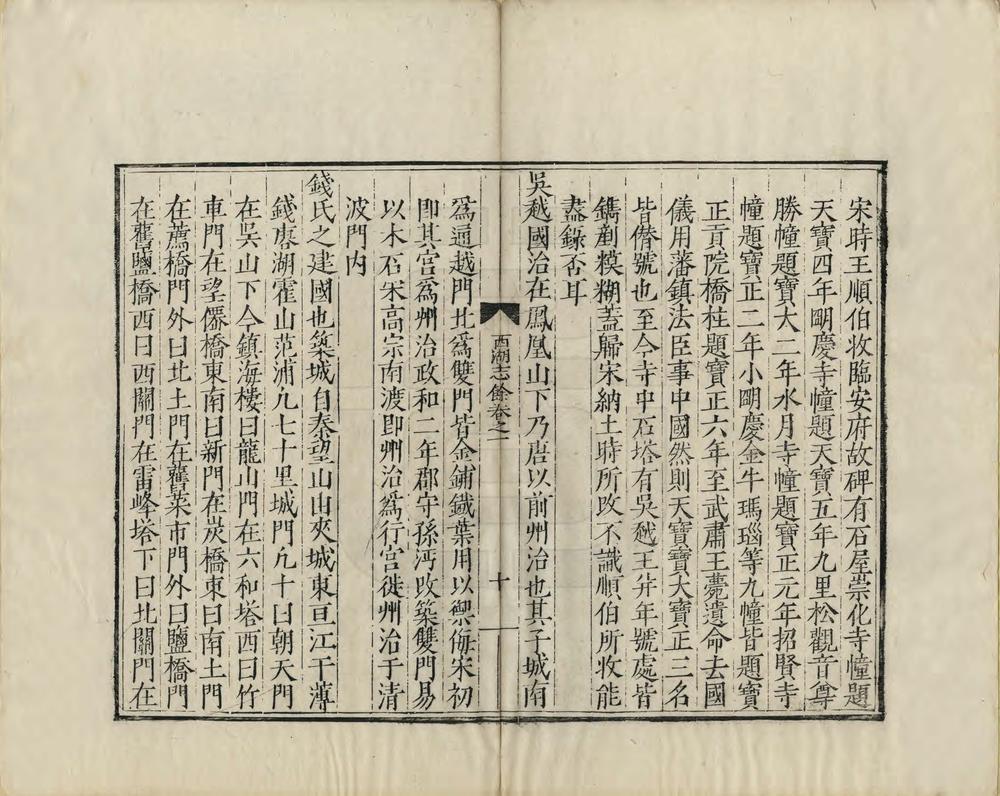 宋時王順伯收臨安府故碑有石屋崇化寺幢題
天寶四年明慶寺幢題天寶五年九里松觀音尊
勝幢題寶大二年水月寺幢題寶正元年招賢寺
幢題寶正二年小明慶金牛瑪瑙等九幢皆題寶
正貢院橋柱題寶正六年至武肅王薨遺命去國
儀用藩鎮法臣事中國然則天寶寶大寶正三名
皆僭號也至今寺中石塔有吳越王幷年號處皆
鐫剷糢糊蓋歸宋納土時所改不識順伯所收能
盡錄否耳
吳越國治在鳳凰山下乃唐以前州治也其子城南
西湖志餘卷之一
十
爲通越門北爲雙門皆金鋪鐵葉用以禦侮宋初
即其宮爲州治政和二年郡守孫沔改築雙門易
以木石宋高宗南渡即州治爲行宮徙州治于清
波門内
錢氏之建國也築城自秦望山由夾城東亘江干薄
錢唐湖霍山范浦凢七十里城門凢十曰朝天門
在吳山下今鎮海樓曰龍山門在六和塔西曰竹
車門在望僊橋東南曰新門在炭橋東曰南土門
在薦橋門外曰北土門在舊菜市門外曰鹽橋門
在舊鹽橋西曰西關門在雷峰塔下曰北關門在